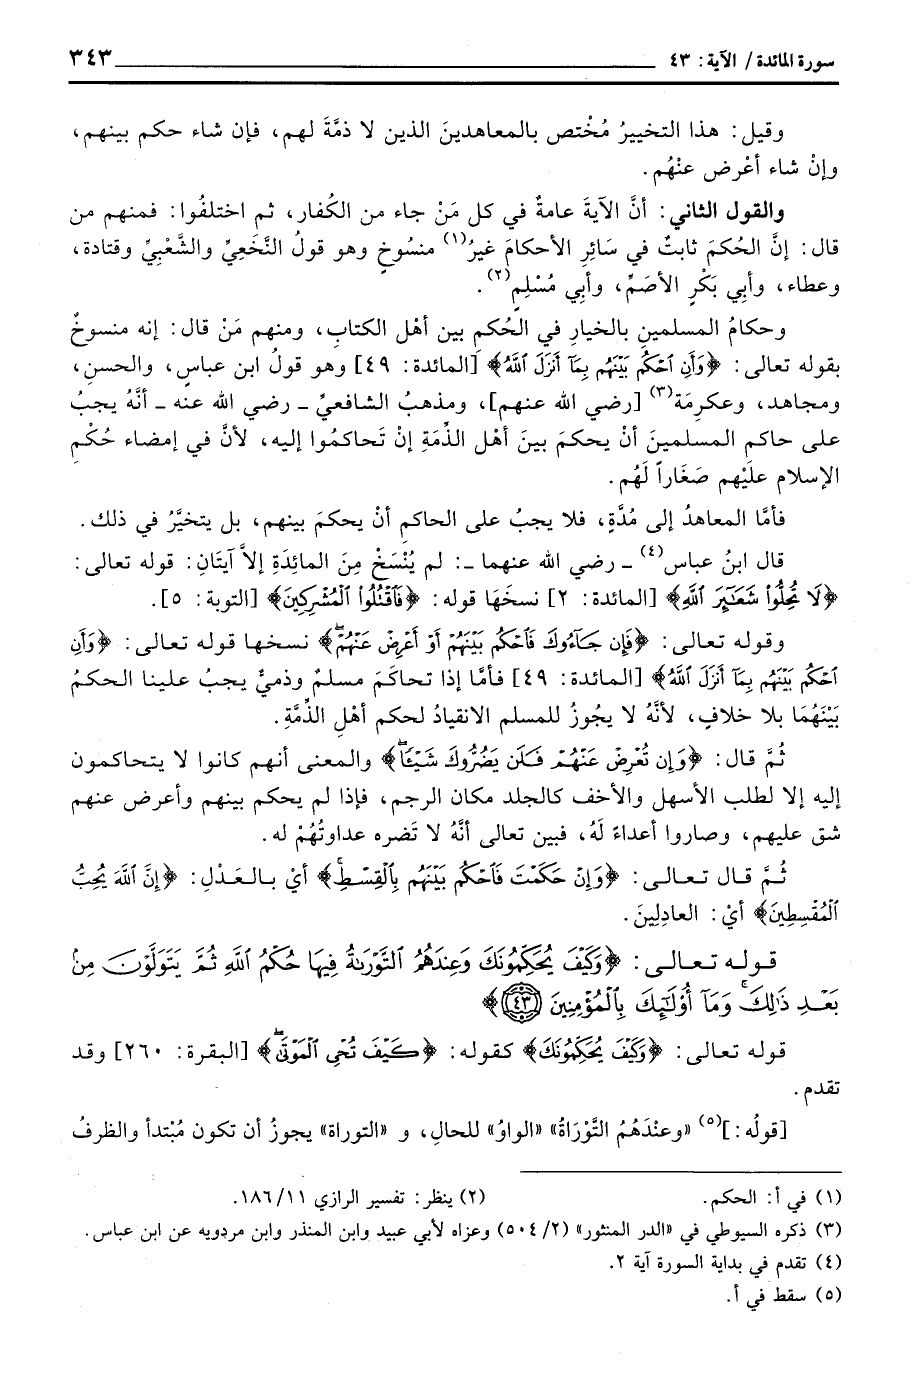 سورة المائدة / الآية : ٤٣ ٣٤٣
وقيل : هذا التخييرُ مُخْتص بالمعاهدينَ الذين لا ذمَّةَ لهم، فإن شاء حكم بينهم،
وإنْ شاء أعْرض عنْهُم.
والقول الثاني : أنَّ الآيَةَ عامةٌ في كل مَنْ جاء من الكُفار، ثم اختلفُوا : فمنهم من
قال : إنَّ الحُكمَ ثابتٌ في سَائِرِ الأحكامَ غيرُ(١) منسُوخٍ وهو قولُ النَّخَعِيِّ والشَّعْبِيِّ وقتادة،
وعطاء، وأبي بَكْرٍ الأصَمِّ، وأبِي مُسْلِمٍ(٢).
وحكامُ المسلمين بالخيارِ في الحُكمِ بين أهْل الكتابِ، ومنهم مَنْ قال : إنه منسوخٌ
بقوله تعالى : ﴿وَأَنِ ٱحْكُم بَيْنَهُم بِمَآ أَنزَلَ ٱللَّهُ﴾ [المائدة : ٤٩] وهو قولُ ابن عباسٍ، والحسنِ،
ومجاهد، وعكرِمَة(٣) [رضي الله عنهم]، ومذهبُ الشافعيِّ ـ رضي الله عنه ـ أنَّهُ يجبُ
على حاكم المسلمينَ أنْ يحكمَ بينَ أهْل الذِّمَةِ إنْ تَحاكمُوا إليه، لأنَّ في إمضاء حُكْمِ
الإسلام علَيْهم صَغَاراً لَهُم.
فأمَّا المعاهدُ إلى مُدَّةٍ، فلا يجبُ على الحاكمِ أنْ يحكمَ بينهم، بل يتخيَّرُ في ذلك.
قال ابنُ عباس(٤) ـ رضي الله عنهما ـ : لم يُنْسَخْ مِنَ المائِدَةِ إلاَّ آيتَانِ : قوله تعالى :
﴿لَا تُحِلُّوا۟ شَعَـٰٓئِرَ ٱللَّهِ﴾ [المائدة : ٢] نسخَهَا قوله : ﴿فَٱقْتُلُوا۟ ٱلْمُشْرِكِينَ﴾ [التوبة : ٥].
وقوله تعالى : ﴿فَإِن جَآءُوكَ فَٱحْكُم بَيْنَهُمْ أَوْ أَعْرِضْ عَنْهُمْ﴾ نسخها قوله تعالى : ﴿وَأَنِ
ٱحْكُم بَيْنَهُم بِمَآ أَنزَلَ ٱللَّهُ﴾ [المائدة : ٤٩] فأمَّا إذا تحاكَمَ مسلمٌ وذميٌّ يجبُ علينا الحكمُ
بيْنَهُمَا بلا خلافٍ، لأنَّهُ لا يجُوزُ للمسلم الانقيادُ لحكم أهْلِ الذِّمَّةِ.
ثُمَّ قال : ﴿وَإِن تُعْرِضْ عَنْهُمْ فَلَن يَضُرُّوكَ شَيْـًٔا﴾ والمعنى أنهم كانوا لا يتحاكمون
إليه إلا لطلب الأسهل والأخف كالجلد مكان الرجم، فإذا لم يحكم بينهم وأعرض عنهم
شق عليهم، وصاروا أعداءً لَهُ، فبين تعالى أنَّهُ لا تَضره عداوتُهُمْ له.
ثُمَّ قال تعالى : ﴿وَإِنْ حَكَمْتَ فَٱحْكُم بَيْنَهُم بِٱلْقِسْطِ﴾ أيْ بالعَدْلِ : ﴿إِنَّ ٱللَّهَ يُحِبُّ
ٱلْمُقْسِطِينَ﴾ أيْ : العادِلِينَ.
قوله تعالى : ﴿وَكَيْفَ يُحَكِّمُونَكَ وَعِندَهُمُ ٱلتَّوْرَىٰةُ فِيهَا حُكْمُ ٱللَّهِ ثُمَّ يَتَوَلَّوْنَ مِنۢ
بَعْدِ ذَٰلِكَ ۚ وَمَآ أُو۟لَـٰٓئِكَ بِٱلْمُؤْمِنِينَ ٤٣﴾
قوله تعالى : ﴿وَكَيْفَ يُحَكِّمُونَكَ﴾ كقوله : ﴿كَيْفَ تُحْىِ ٱلْمَوْتَىٰ﴾ [البقرة : ٢٦٠] وقد
تقدم.
[قولُه : ](٥) «وعنْدَهُمُ التَّوْرَاةُ» «الواوُ» للحالِ، و «التوراة» يجوزُ أن تكون مُبْتدأ والظرفُ
(١) في أ : الحكم. (٢) ينظر : تفسير الرازي ١١/ ١٨٦.
(٣) ذكره السيوطي في «الدر المنثور» (٢/ ٥٠٤) وعزاه لأبي عبيد وابن المنذر وابن مردويه عن ابن عباس.
(٤) تقدم في بداية السورة آية ٢.
(٥) سقط في أ.